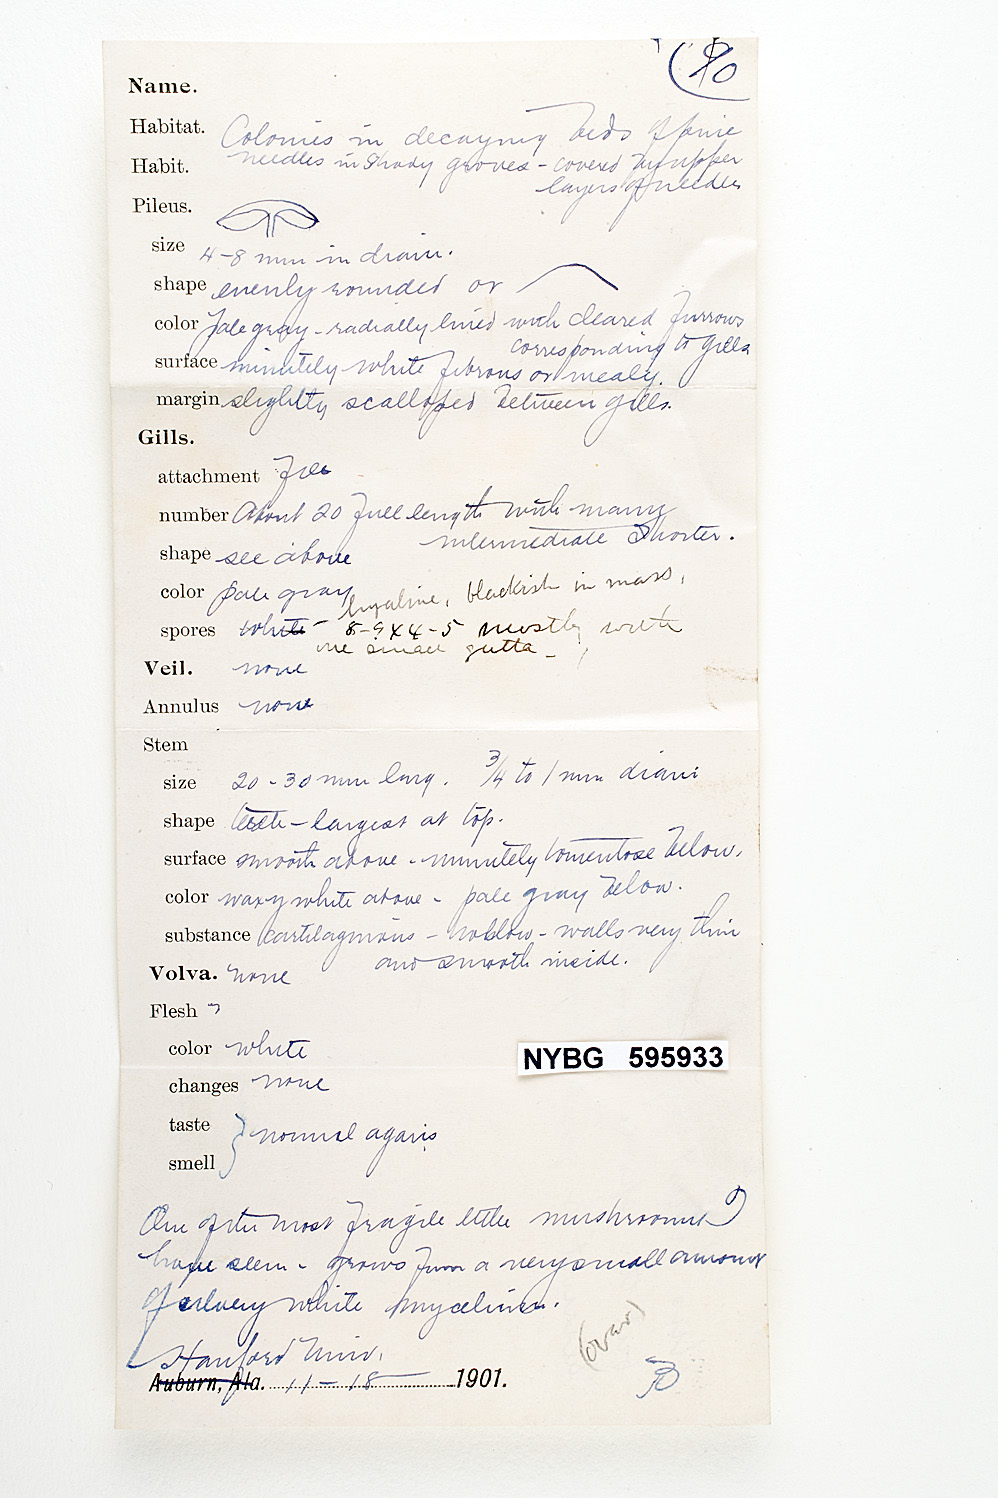 90
Name.
Habitat. Colonies in decaying beds of pine
Habit. needles in shady groves - covered by upper
layers of needles
Pileus.
size 4-8 mm in diam.
shape evenly rounded or
color Pale gray - radially lined with cleared furrows
corresponding to gills
surface minutely white fibrous or mealy.
margin slightly scalloped between gills.
Gills.
attachment free
number About 20 full length with many
intermediate shorter.
shape see above
color pale gray
hyaline, blackish in mass,
spores white - 8-9x4-5 mostly with
one small gutta -
Veil. none
Annulus none
Stem
size 20-30 mm long. 3/4 to 1 mm diam
shape terete - largest at top.
surface smooth above - minutely tomentose below.
color waxy white above - pale gray below.
substance cartilaginous - hollow - walls very thin
and smooth inside.
Volva. none
Flesh
color white
NYBG 595933
changes none
taste
} normal agaric
smell
One of the most fragile little mushrooms I
have seen - grows from a very small amount
of silvery white mycelium.
(over)
Stanford Univ.
Auburn, Ala. 11-18 1901.